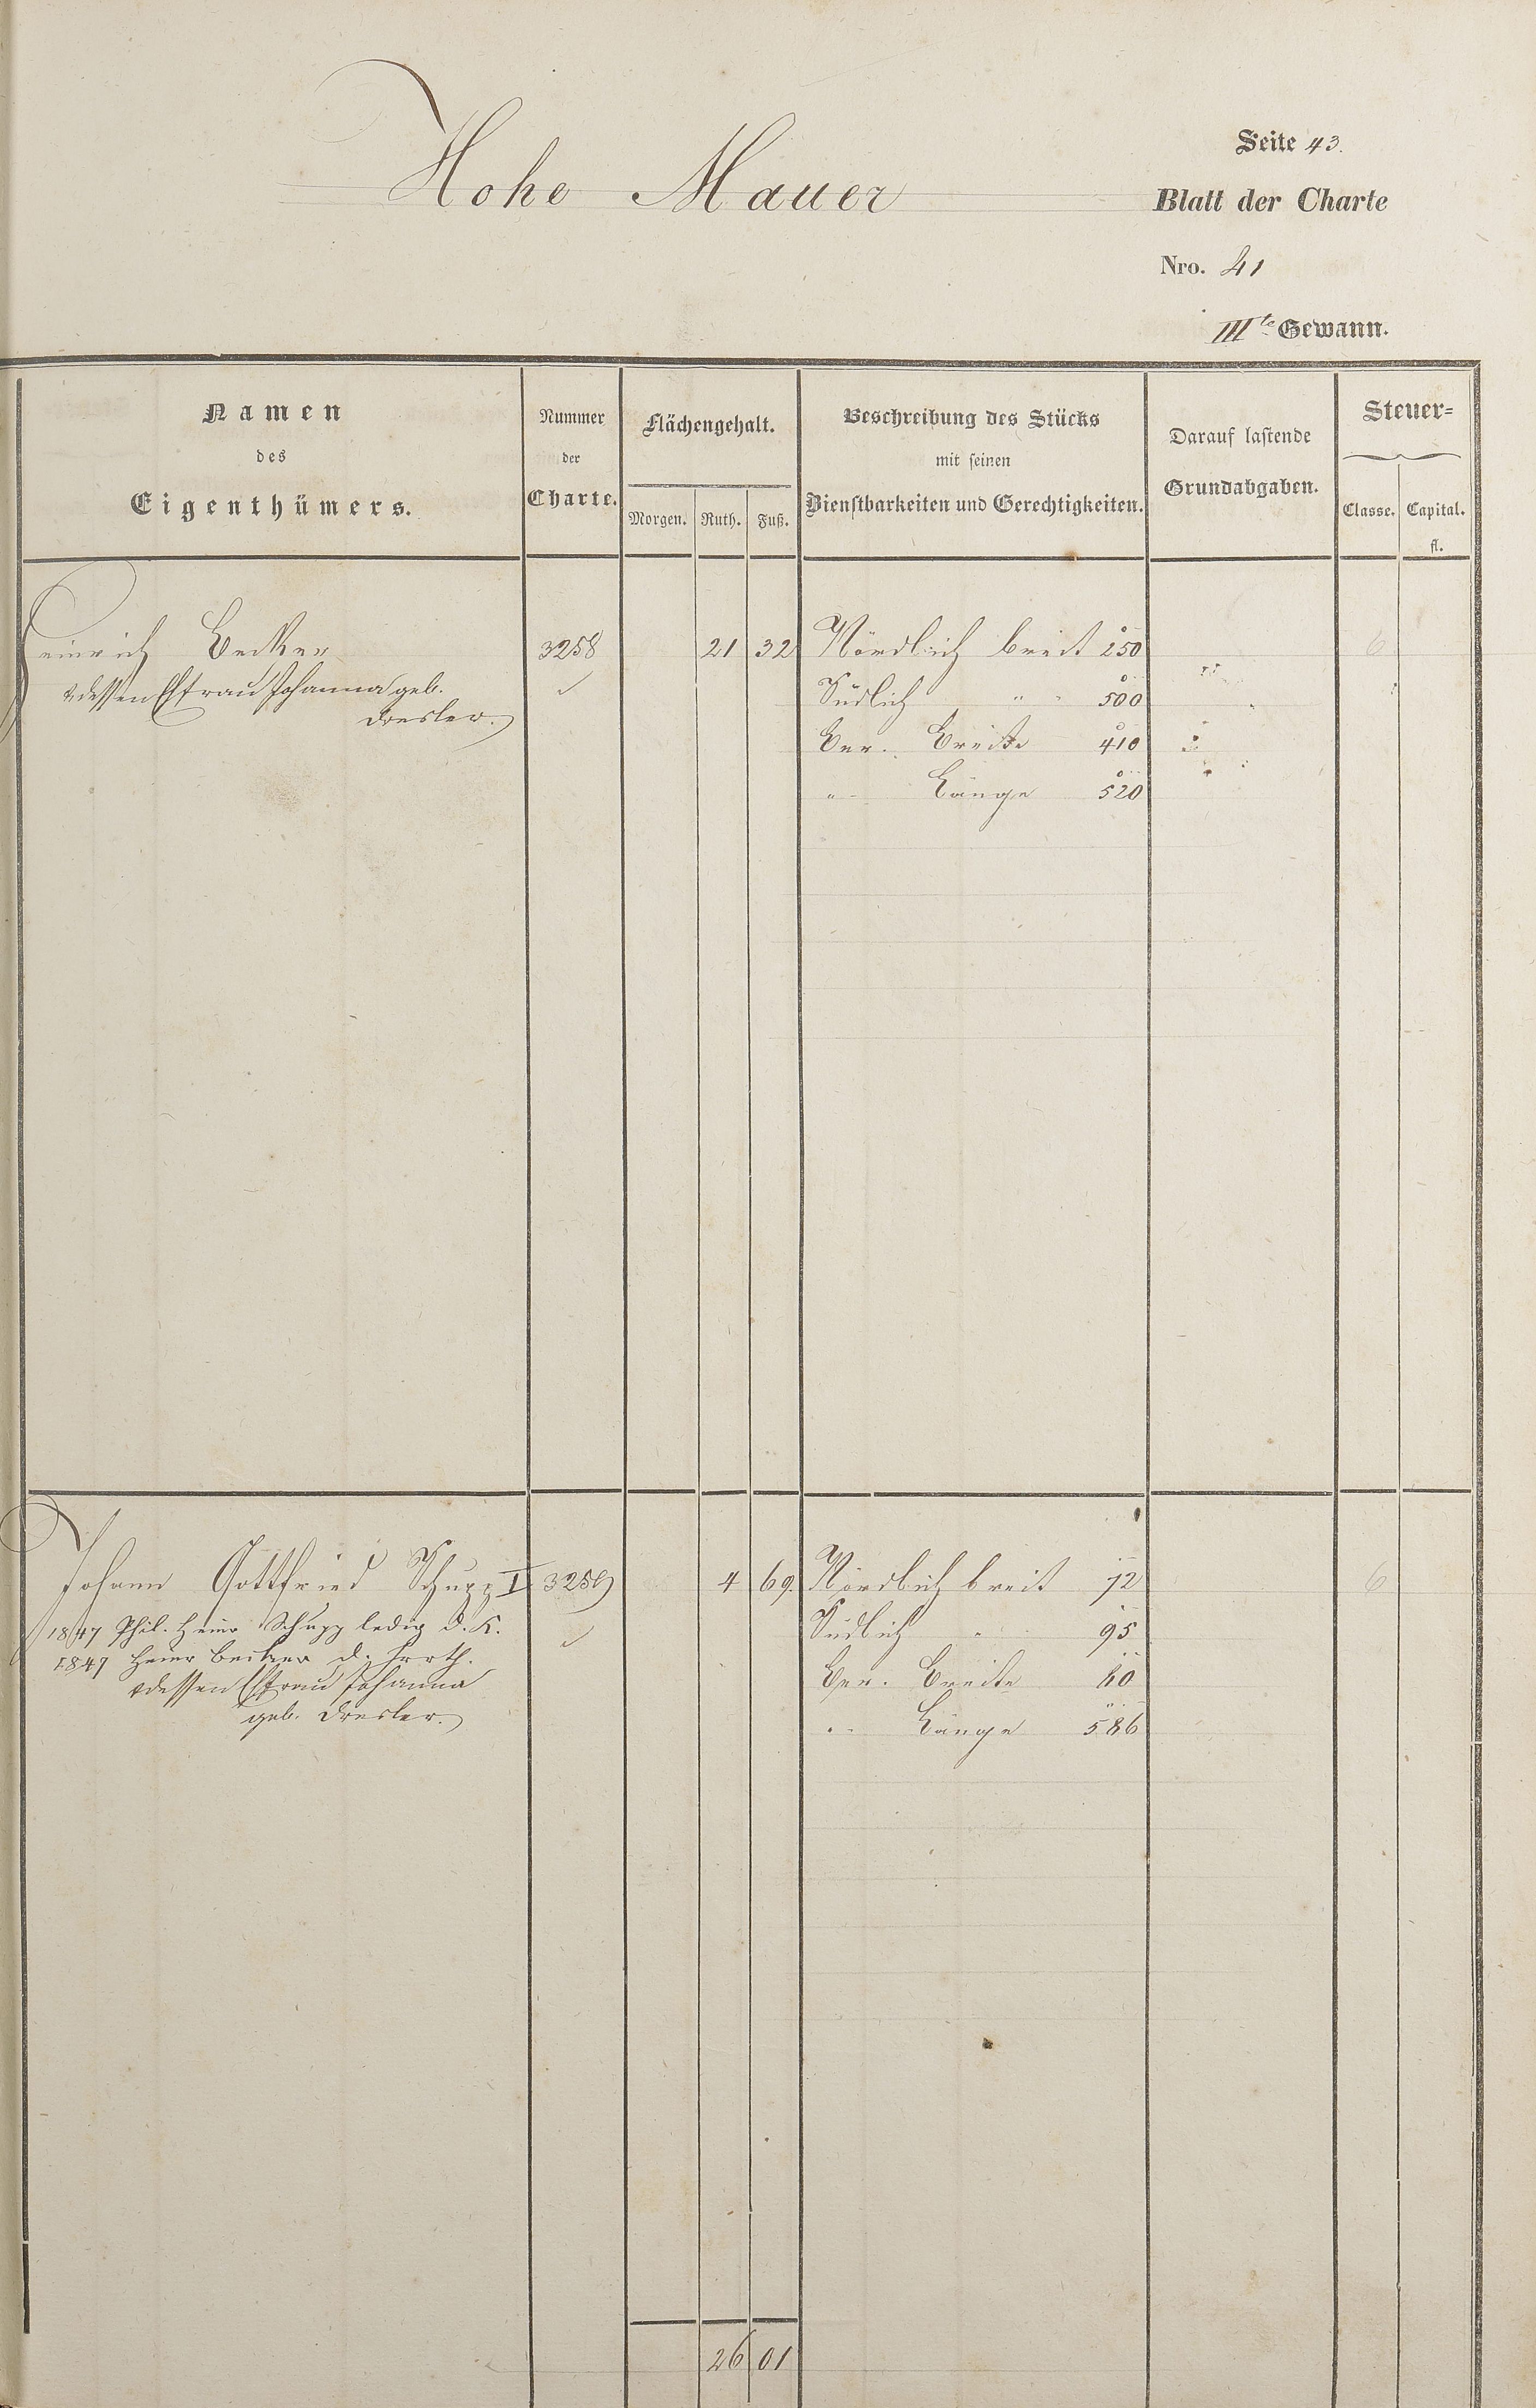 Hohe Mauer
Seite 43.
Blatt der Charte
Nro. 41
IIIte Gewann.
Namen
des
Eigenthümers.
Nummer
der
Charte.
Flächengehalt.
Morgen. Ruth. Fuß.
Beschreibung des Stücks
mit seinen
Dienstbarkeiten und Gerechtigkeiten.
Darauf lastende
Grundabgaben.
Steuer=
Classe. Capital.
fl.
Heinrich Becker 3258 21 32 Nördlich breit 250 6
& dessen Efrau Johanna geb. Südlich " 500
Dresler. Ber. Breite 410
" Länge 520
Johann Gottfried Schupp I 3259 4 69. Nördlich breit 72 6
1847 Phil. Heinr Schupp ledig d. K. Südlich " 95
1847 Heinr Becker d. Ber. Breite 80
& dessen Efrau Johanna " Länge 586
geb. Dresler.
26 01